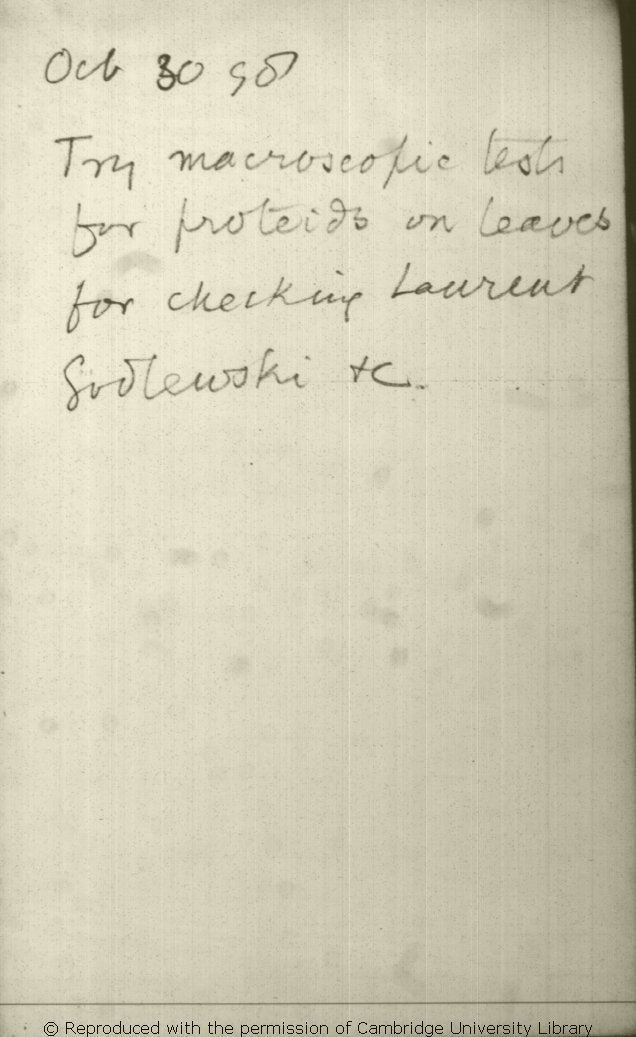 Oct 30 98
Try macroscopic tests
for proteids on leaves
for checking Laurent
Godlewski &c.
© Reproduced with the permission of Cambridge University Library